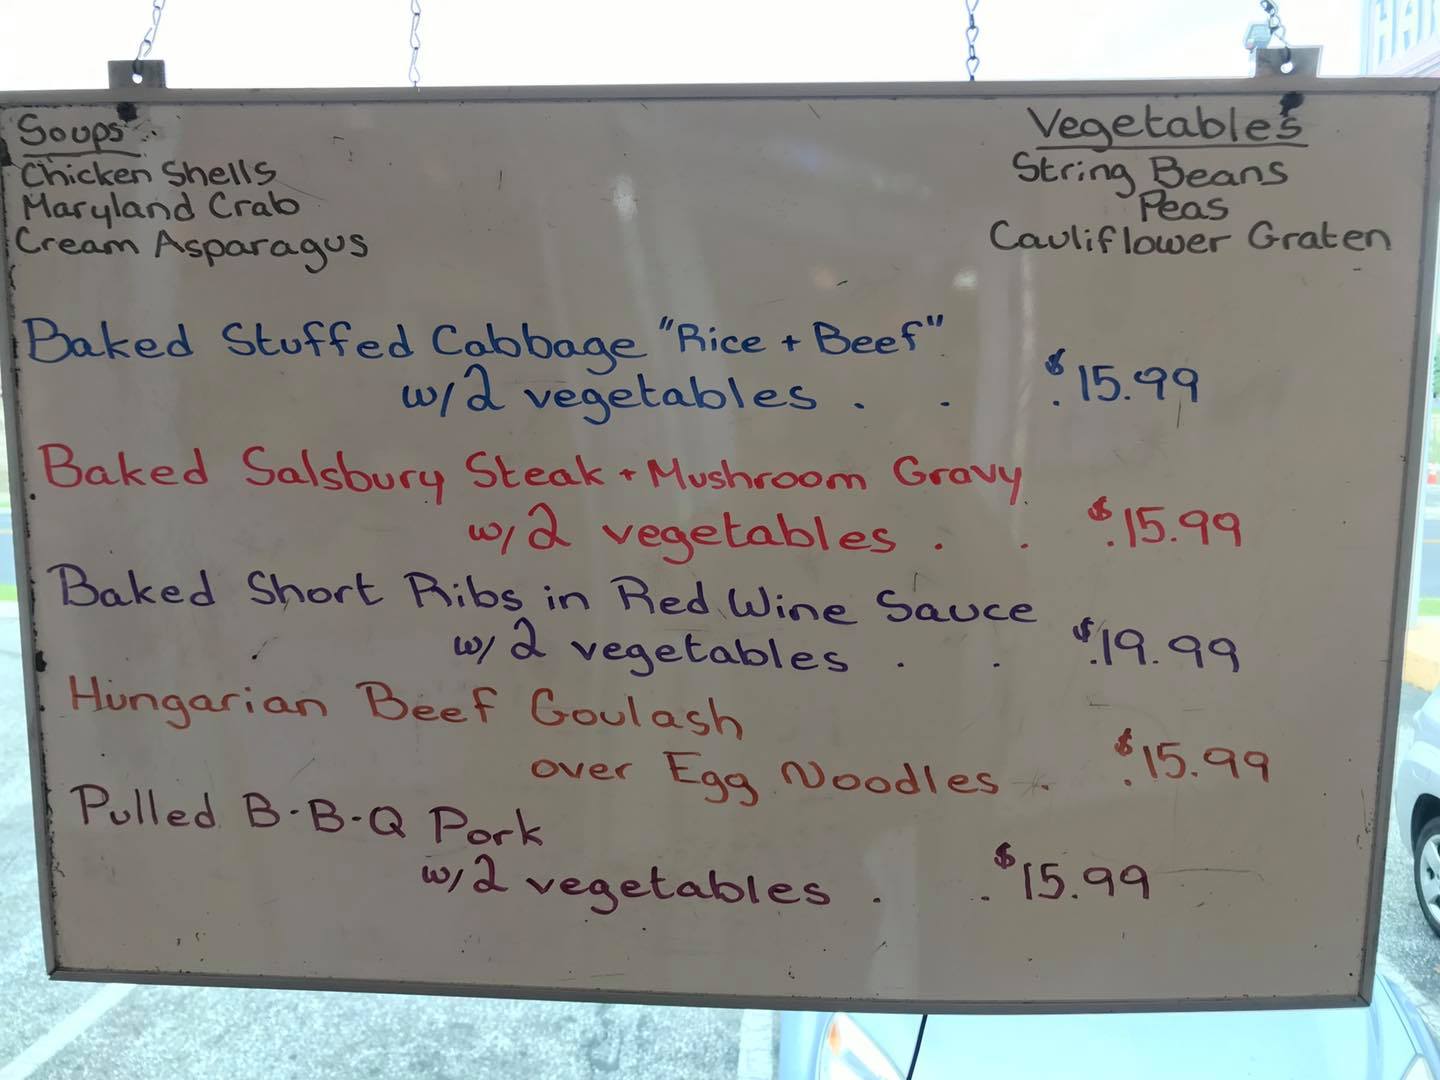 Soups
Chicken Shells
Maryland Crab
Cream Asparagus
Vegetables
String Beans
Peas
Cauliflower Graten
Baked Stuffed Cabbage "Rice + Beef"
w/2 vegetables . . . $15.99
Baked Salsbury Steak + Mushroom Gravy
w/2 vegetables . . . $15.99
Baked Short Ribs in Red Wine Sauce
w/2 vegetables . . . $19.99
Hungarian Beef Goulash
over Egg Noodles . . $15.99
Pulled B-B-Q Pork
w/2 vegetables . . $15.99